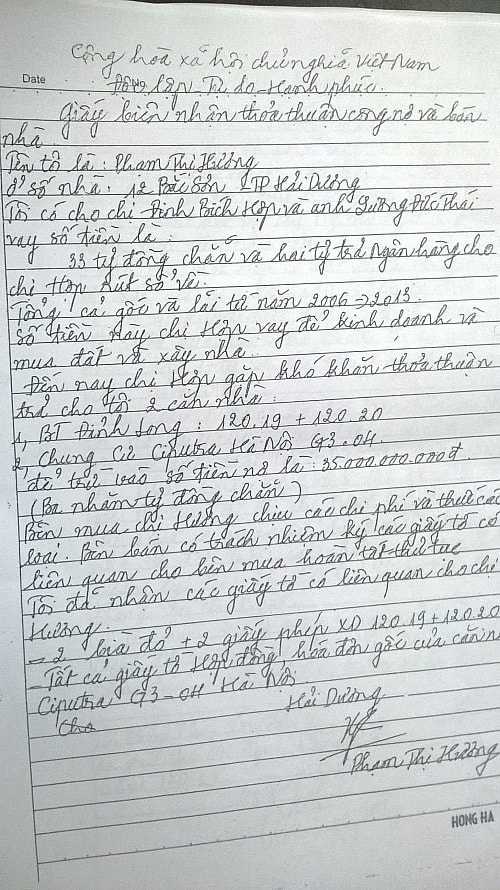 Cộng hoà xã hội chủ nghĩa Việt Nam
Date No
Độc lập Tự do - Hạnh phúc.
Giấy biên nhận thỏa thuận công nợ và bán
nhà.
Tên tôi là: Phạm Thị Hường
Ở số nhà: 12 Bắc Sơn - TP Hải Dương
Tôi có cho chị Đinh Bích Hợp và anh Lương Đức Phái
vay số tiền là:
33 tỷ đồng chẵn và hai tỷ trả Ngân hàng cho
chị Hợp rút sổ về.
Tổng cả gốc và lãi từ năm 2006 => 2013.
Số tiền này chị Hợp vay để kinh doanh và
mua đất và xây nhà.
Đến nay chị Hợp gặp khó khăn thỏa thuận
trả cho tôi 2 căn nhà:
1, BT Đỉnh Long: 120.19 + 120.20
2, Chung Cư Ciputra Hà Nội G3.04.
để trừ vào số tiền nợ là: 35.000.000.000đ
(Ba nhăm tỷ đồng chẵn)
Bên mua chị Hường chịu các chi phí và thuế các
loại. Bên bán có trách nhiệm ký các giấy tờ có
liên quan cho bên mua hoàn tất thủ tục
Tôi đã nhận các giấy tờ có liên quan cho chị
Hường.
- 2 bìa đỏ + 2 giấy phép XD 120.19 + 120.20
- Tất cả giấy tờ Hợp đồng hóa đơn gốc của căn
Ciputra G3-04 Hà Nội
Hải Dương
Phạm Thị Hường
HONG HA